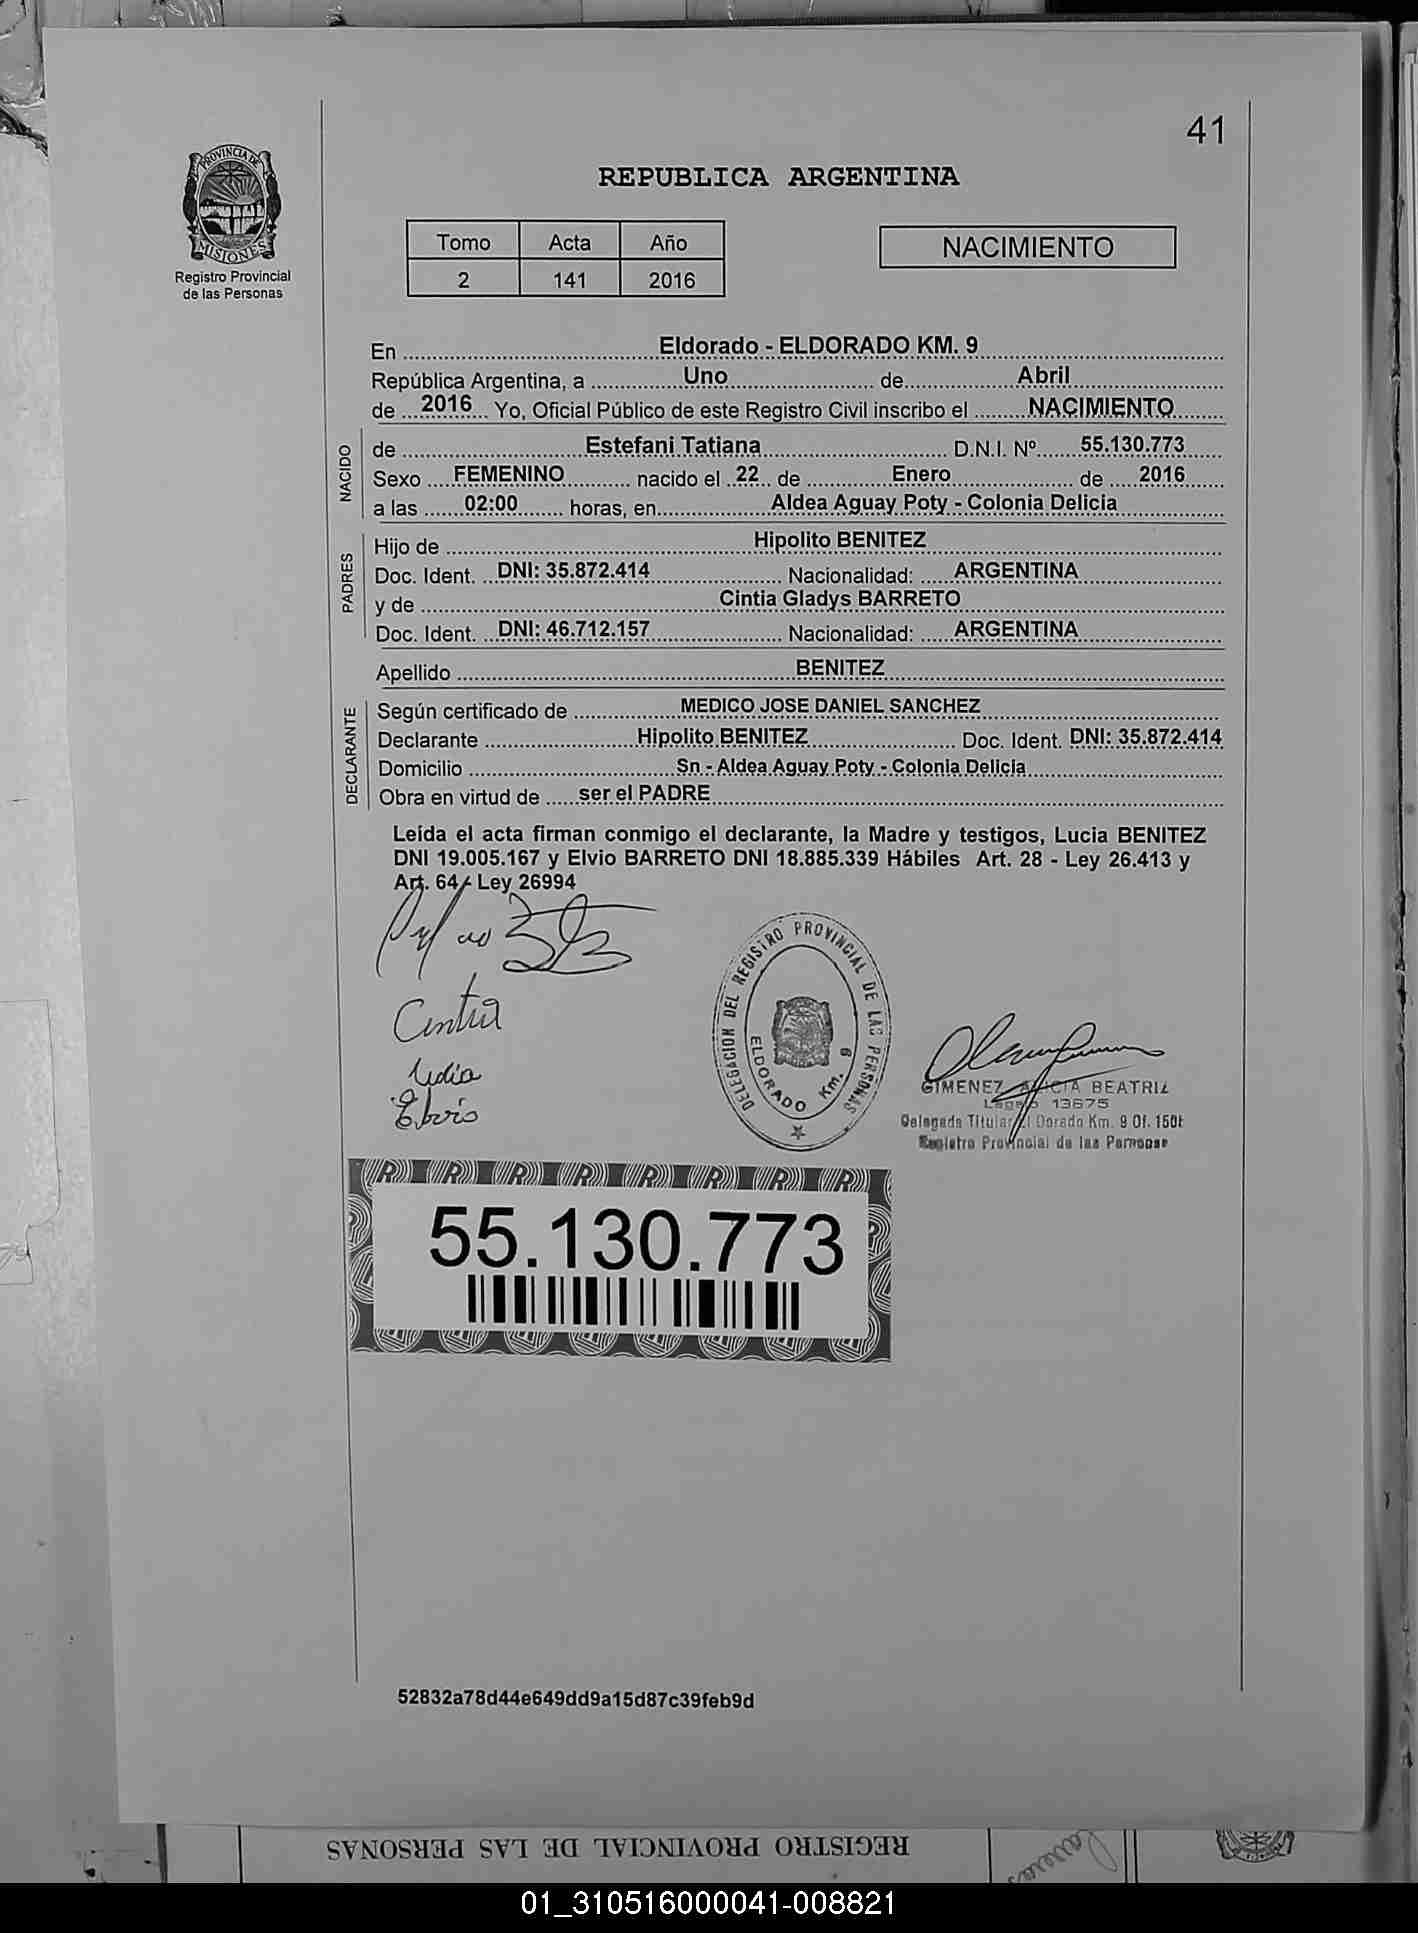 41
PROVINCIA DE
MISIONES
Registro Provincial
de las Personas
REPUBLICA ARGENTINA
Tomo Acta Año
2 141 2016
NACIMIENTO
En Eldorado - ELDORADO KM. 9
República Argentina, a Uno de Abril
de 2016 Yo, Oficial Público de este Registro Civil inscribo el NACIMIENTO
NACIDO
de Estefani Tatiana D.N.I. Nº 55.130.773
Sexo FEMENINO nacido el 22 de Enero de 2016
a las 02:00 horas, en Aldea Aguay Poty - Colonia Delicia
PADRES
Hijo de Hipolito BENITEZ
Doc. Ident. DNI: 35.872.414 Nacionalidad: ARGENTINA
y de Cintia Gladys BARRETO
Doc. Ident. DNI: 46.712.157 Nacionalidad: ARGENTINA
Apellido BENITEZ
DECLARANTE
Según certificado de MEDICO JOSE DANIEL SANCHEZ
Declarante Hipolito BENITEZ Doc. Ident. DNI: 35.872.414
Domicilio Sn - Aldea Aguay Poty - Colonia Delicia
Obra en virtud de ser el PADRE
Leída el acta firman conmigo el declarante, la Madre y testigos, Lucia BENITEZ
DNI 19.005.167 y Elvio BARRETO DNI 18.885.339 Hábiles Art. 28 - Ley 26.413 y
Art. 64 - Ley 26994
Cintia
DELEGACION DEL REGISTRO PROVINCIAL DE LAS PERSONAS
ELDORADO Km. 9
GIMENEZ ALICIA BEATRIZ
Legajo 13675
Delegada Titular El Dorado Km. 9 Of. 150
Registro Provincial de las Personas
55.130.773
52832a78d44e649dd9a15d87c39feb9d
REGISTRO PROVINCIAL DE LAS PERSONAS
01_310516000041-008821